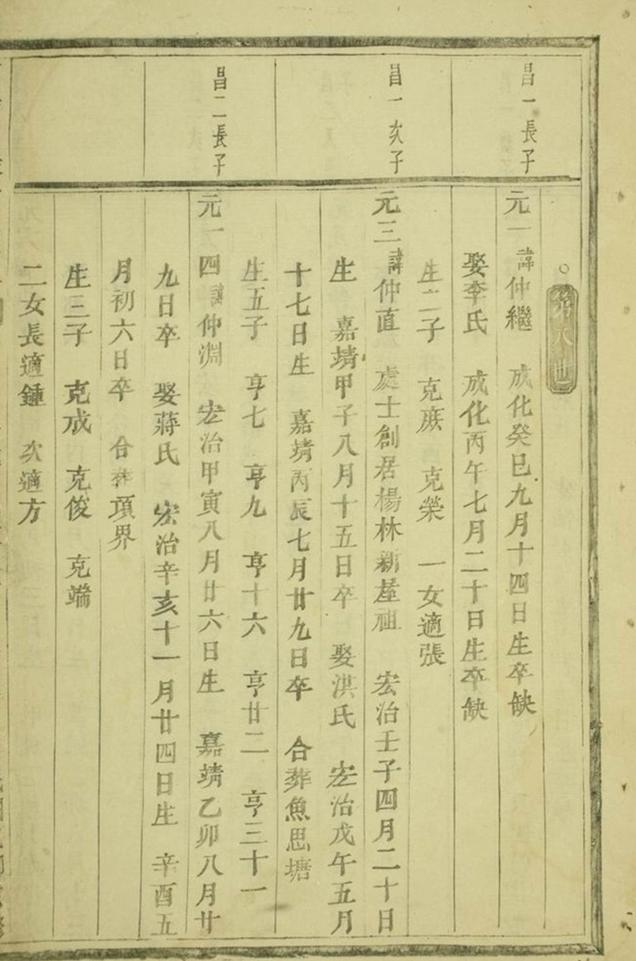 第八世
昌一長子
元一諱仲繼 成化癸巳九月十四日生卒缺
娶李氏 成化丙午七月二十日生卒缺
生二子 克庻 克榮 一女適張
昌一次子
元三諱仲直 處士創居楊林新屋祖 宏治壬子四月二十日
生 嘉靖甲子八月十五日卒 娶洪氏 宏治戊午五月
十七日生 嘉靖丙辰七月廿九日卒 合葬魚思塘
生五子 亨七 亨九 亨十六 亨廿二 亨三十一
昌二長子
元一四諱仲淵 宏治甲寅八月廿六日生 嘉靖乙卯八月廿
九日卒 娶蔣氏 宏治辛亥十一月廿四日生 辛酉五
月初六日卒 合葬項界
生三子 克成 克俊 克端
二女長適鍾 次適方